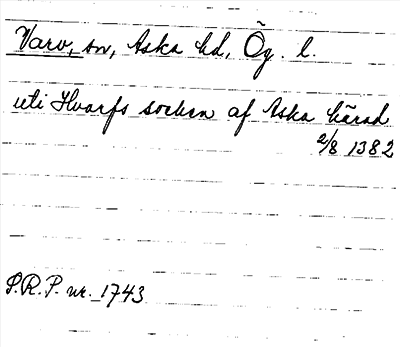 Varv, sn, Aska hd, Ög. l.
uti Hvarfs socken af Aska härad
2/8 1382
S.R.P. nr. 1743